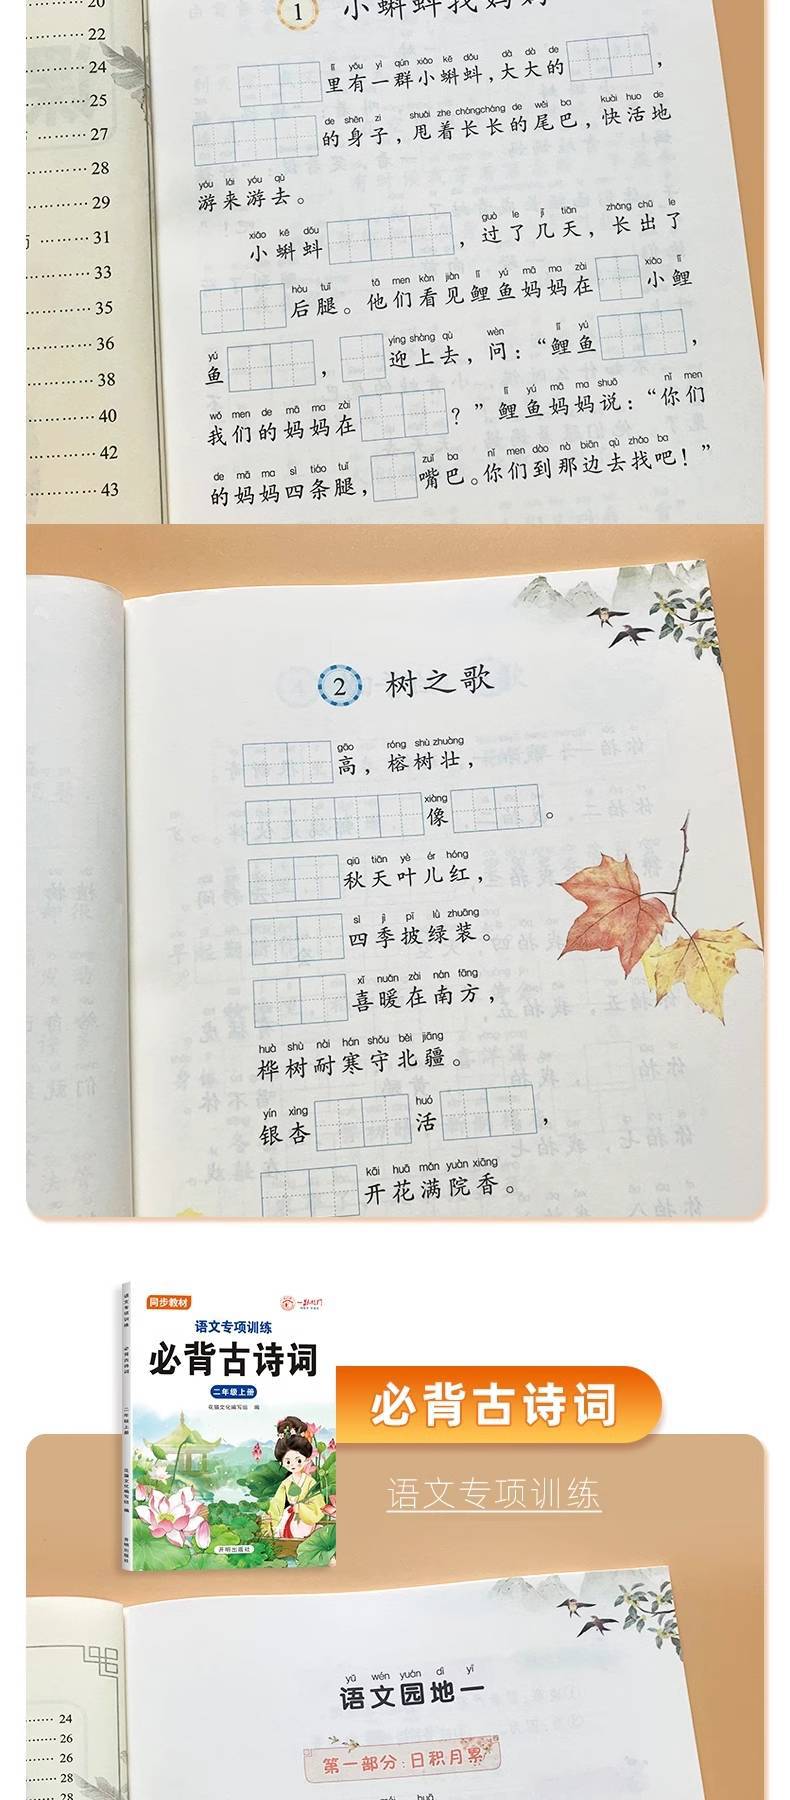 20
22
24
25
27
28
29
31
33
35
36
38
40
42
43
1 小蝌蚪找妈妈
lǐ yǒu yì qún xiǎo kē dǒu dà dà de
里有一群小蝌蚪，大大的，
de shēn zi shuǎi zhe cháng cháng de wěi ba kuài huo de
的身子，甩着长长的尾巴，快活地
yóu lái yóu qù
游来游去。
xiǎo kē dǒu guò le jǐ tiān zhǎng chū le
小蝌蚪，过了几天，长出了
hòu tuǐ tā men kàn jiàn lǐ yú mā ma zài xiǎo lǐ
后腿。他们看见鲤鱼妈妈在小鲤
yú yíng shàng qù wèn lǐ yú
鱼，迎上去，问：“鲤鱼，
wǒ men de mā ma zài lǐ yú mā ma shuō nǐ men
我们的妈妈在？”鲤鱼妈妈说：“你们
de mā ma sì tiáo tuǐ zuǐ ba nǐ men dào nà biān qù zhǎo ba
的妈妈四条腿，嘴巴。你们到那边去找吧！”
2 树之歌
gāo róng shù zhuàng
高，榕树壮，
xiàng
像。
qiū tiān yè ér hóng
秋天叶儿红，
sì jì pī lǜ zhuāng
四季披绿装。
xǐ nuǎn zài nán fāng
喜暖在南方，
huà shù nài hán shǒu běi jiāng
桦树耐寒守北疆。
yín xìng huó
银杏活，
kāi huā mǎn yuàn xiāng
开花满院香。
语文专项训练
必背古诗词
二年级上册
同步教材
语文专项训练
必背古诗词
二年级上册
开明出版社
必背古诗词
语文专项训练
24
26
26
28
28
yǔ wén yuán dì yī
语文园地一
第一部分：日积月累